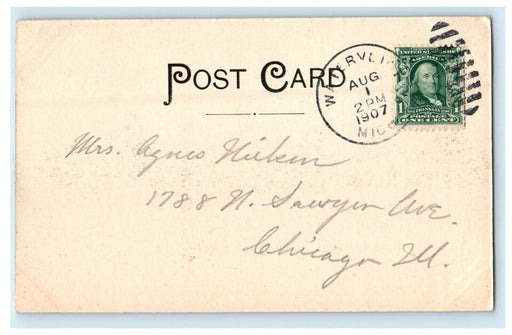 POST CARD
WATERVLIET
AUG
1
2 PM
1907
MICH
UNITED STATES OF
AMERICA
1
FRANKLIN
POSTAGE
ONE CENT
Mrs. Agnes
1788 N. Sawyer Ave.
Chicago Ill.